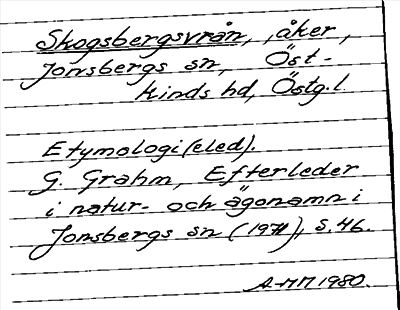 Skogsbergsvrån, åker,
Jonsbergs sn, Öst-
kinds hd, Östg.l.
Etymologi (eled).
G. Grahm, Efterleder
i natur- och ägonamn i
Jonsbergs sn (1971), s. 46.
A-MM 1980.